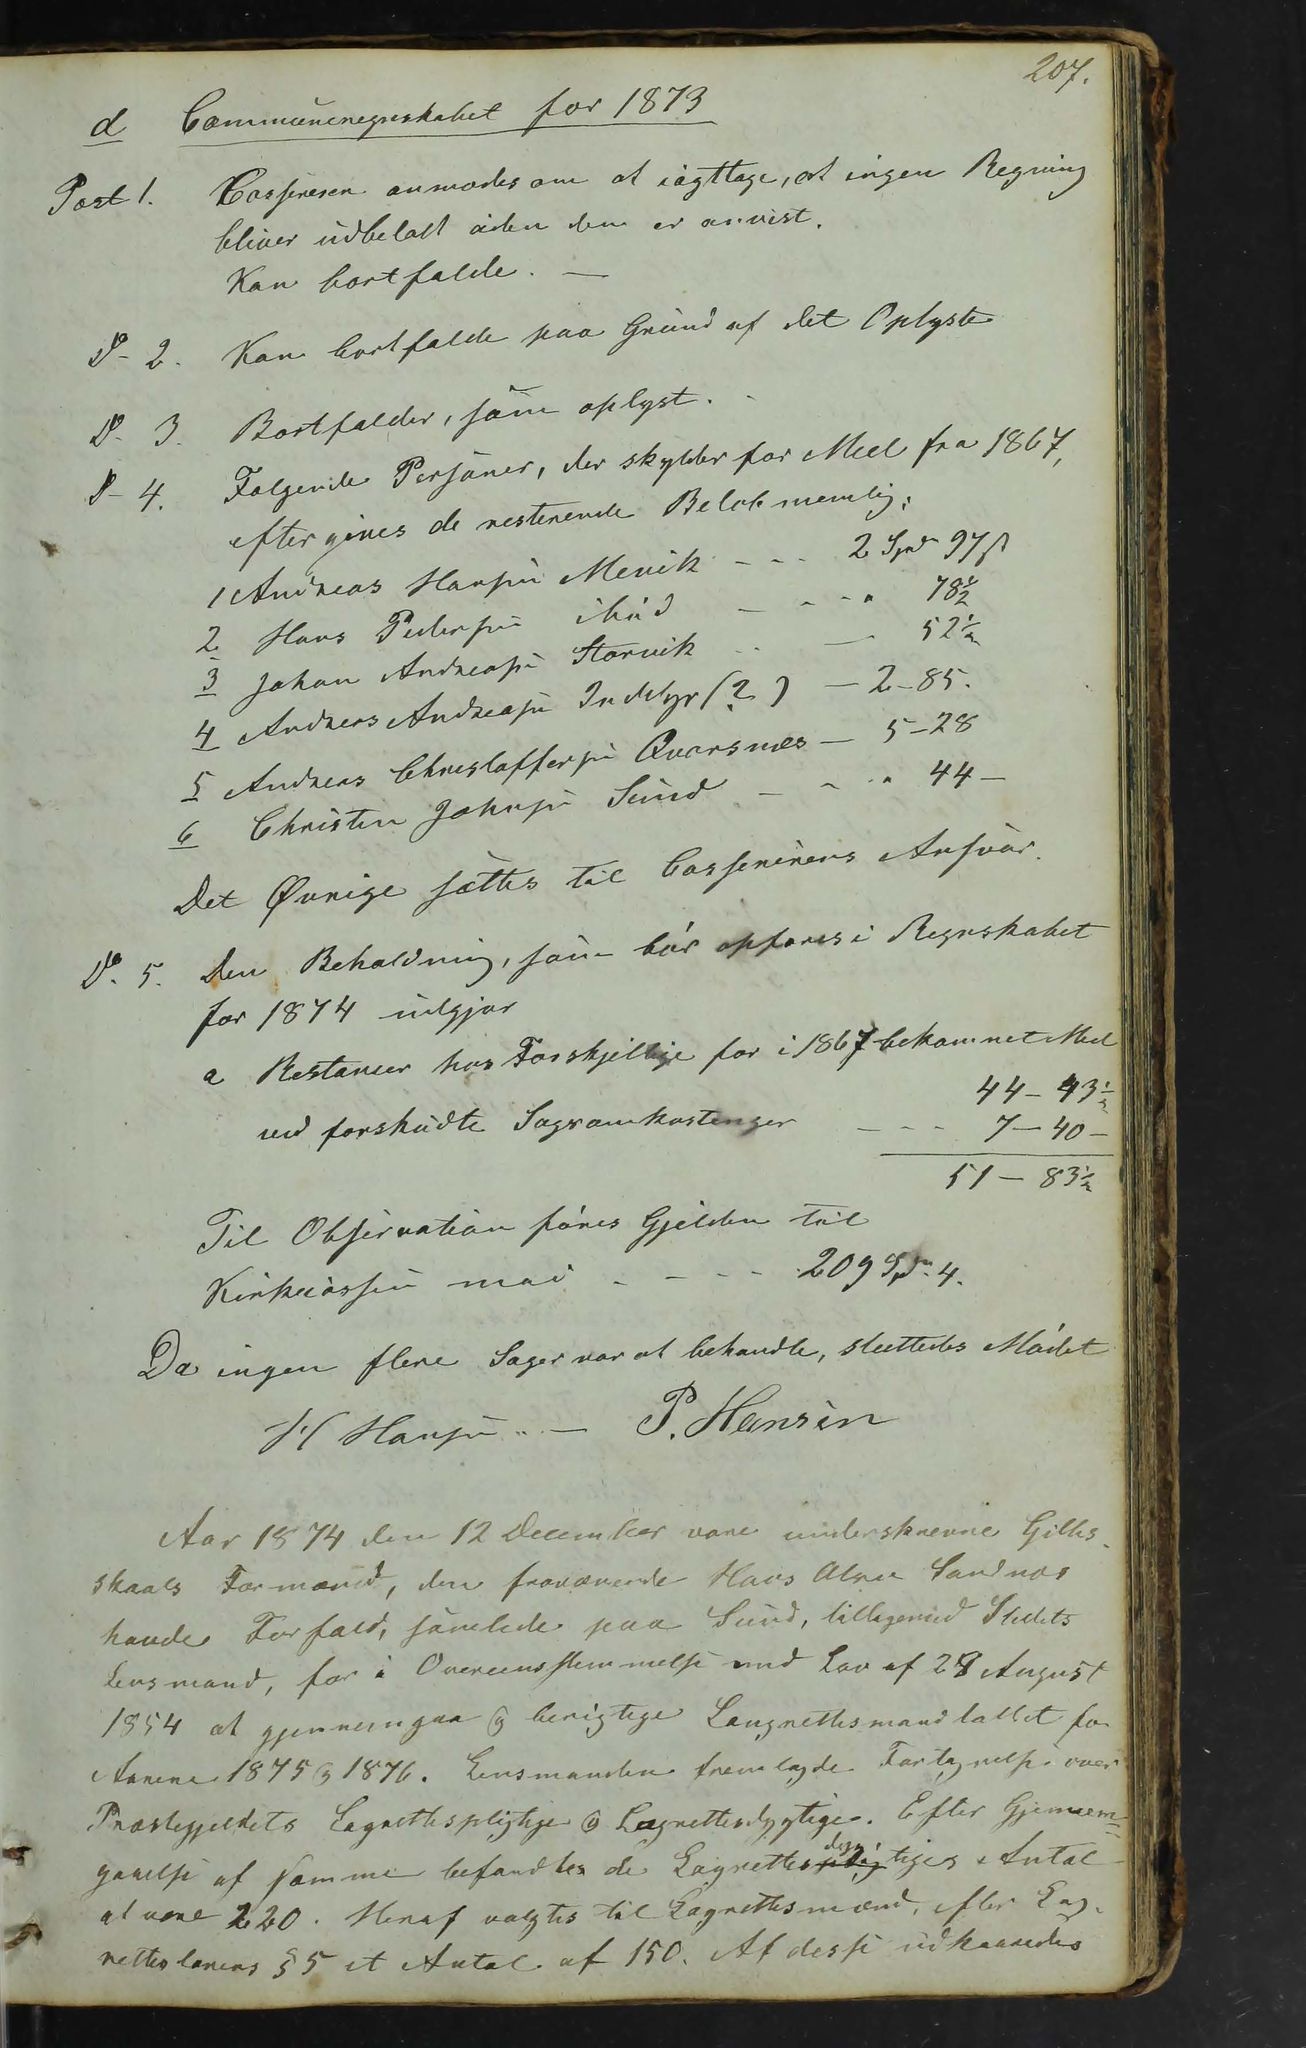 207.
d Communeregnskabet for 1873
Post 1. Casserern anmodes om at iagttage, at ingen Regning
bliver udbetalt uden den er anvist.
Kan bortfalde. —
D- 2. Kan bortfalde paa Grund af det Oplyste
D- 3. Bortfalder, som oplyst.
D- 4. Følgende Personer, der skylder for Meel fra 1867,
eftergives de resterende Beløb nemlig:
1 Andreas Hansen Mevik - - - 2 Spd 97 ß
2 Hans Pedersen ibid - - - " 78½
3 Johan Andreasen Storvik - — 52½
4 Andreas Andreasen Inddyr (?) — 2-85.
5 Andreas Christoffersen Qvarsnæs — 5-28
6 Christen Johnsen Sund - - " 44 —
Det Øvrige sættes til Cassererens Ansvar.
Do. 5. Den Beholdning, som bør opføres i Regnskabet
for 1874 udgjør
a Restancer hos Forskjellige for i 1867 bekommet Meel
44 - 43½
ved forskudte Sagsomkostninger - - - 7 - 40 -
51 — 83½
Til Observation føres Gjelden til
Kirkecassen med - - - - 209 Spd. 4.
Da ingen flere Sager var at behandle, sluttedes Mødet
H Hansen — P. Hansen
Aar 1874 den 12 December vare underskrevne Gilde-
skaals Formænd, den fraværende Hans Olsen Sandnæs
havde Forfald, samlede paa Sund, tilligemed Stedets
Lensmand, for i Overeensstemmelse med Lov af 28 August
1854 at gjennemgaa og berigtige Laugrettesmandtallet for
Aarene 1875 og 1876. Lensmanden fremlagde Fortegnelse over
Præstegjeldets Lagrettespligtige og Lagrettesdygtige. Efter Gjennem-
gaaelse af samme befandtes de Lagrettesdygtiges Antal
at være 220. Heraf valgtes til Lagrettesmænd, efter Lag-
retteslovens § 5 et Antal af 150. Af disse udkaaredes